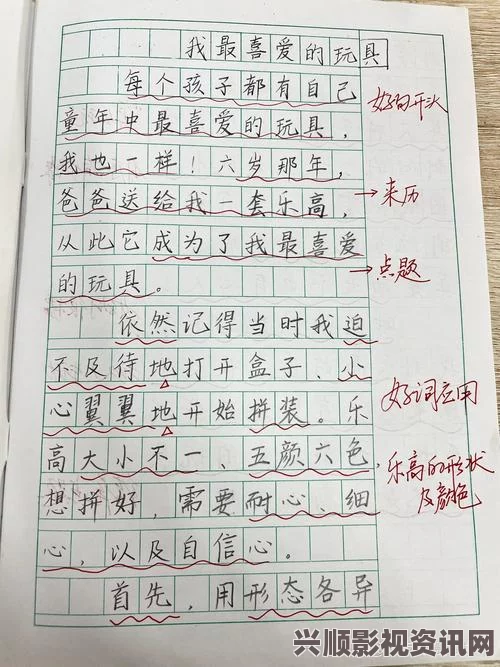 我最喜爱的玩具
每个孩子都有自己
好的开头
童年中最喜爱的玩具，
我也一样！六岁那年，
爸爸送给我一套乐高，
→来历
从此它成为了我最喜爱
→点题
的玩具。
依然记得当时我迫
不及待地打开盒子、小
心翼翼地开始拼装。乐
好词应用
高大小不一、五颜六色，
乐高的形状
及颜色
想拼好，需要耐心、细
心，以及自信心。
首先，用形态各异
兴顺影视资讯网